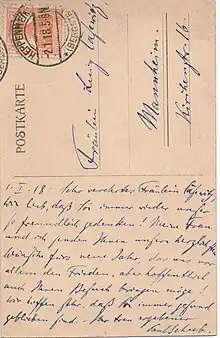 HEPPENHEIM
2.1.18.5-6N
(BERGSTR.)
POSTKARTE
Fräulein Luny
Mannheim.
Kirchenstr. 16.
1. I. 18. Sehr verehrtes Fräulein
wie lieb, daß Sie immer wieder unser
so freundlich gedenken! Meine Frau
und ich senden Ihnen unsere herzlichsten
Wünsche fürs neue Jahr, das uns vor
allem den Frieden, aber hoffentlich
auch Ihren Besuch bringen möge!
Wir hoffen sehr, daß Sie immer gesund
geblieben sind. Ihr treu ergebener